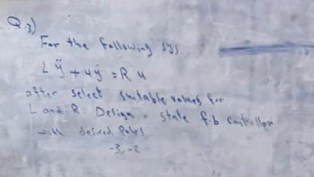 Q.3)
For the following sys
L ÿ + 4ẏ = R u
after select suitable values for
L and R. Design a state f.b controller
with desired Poles
-3, -2